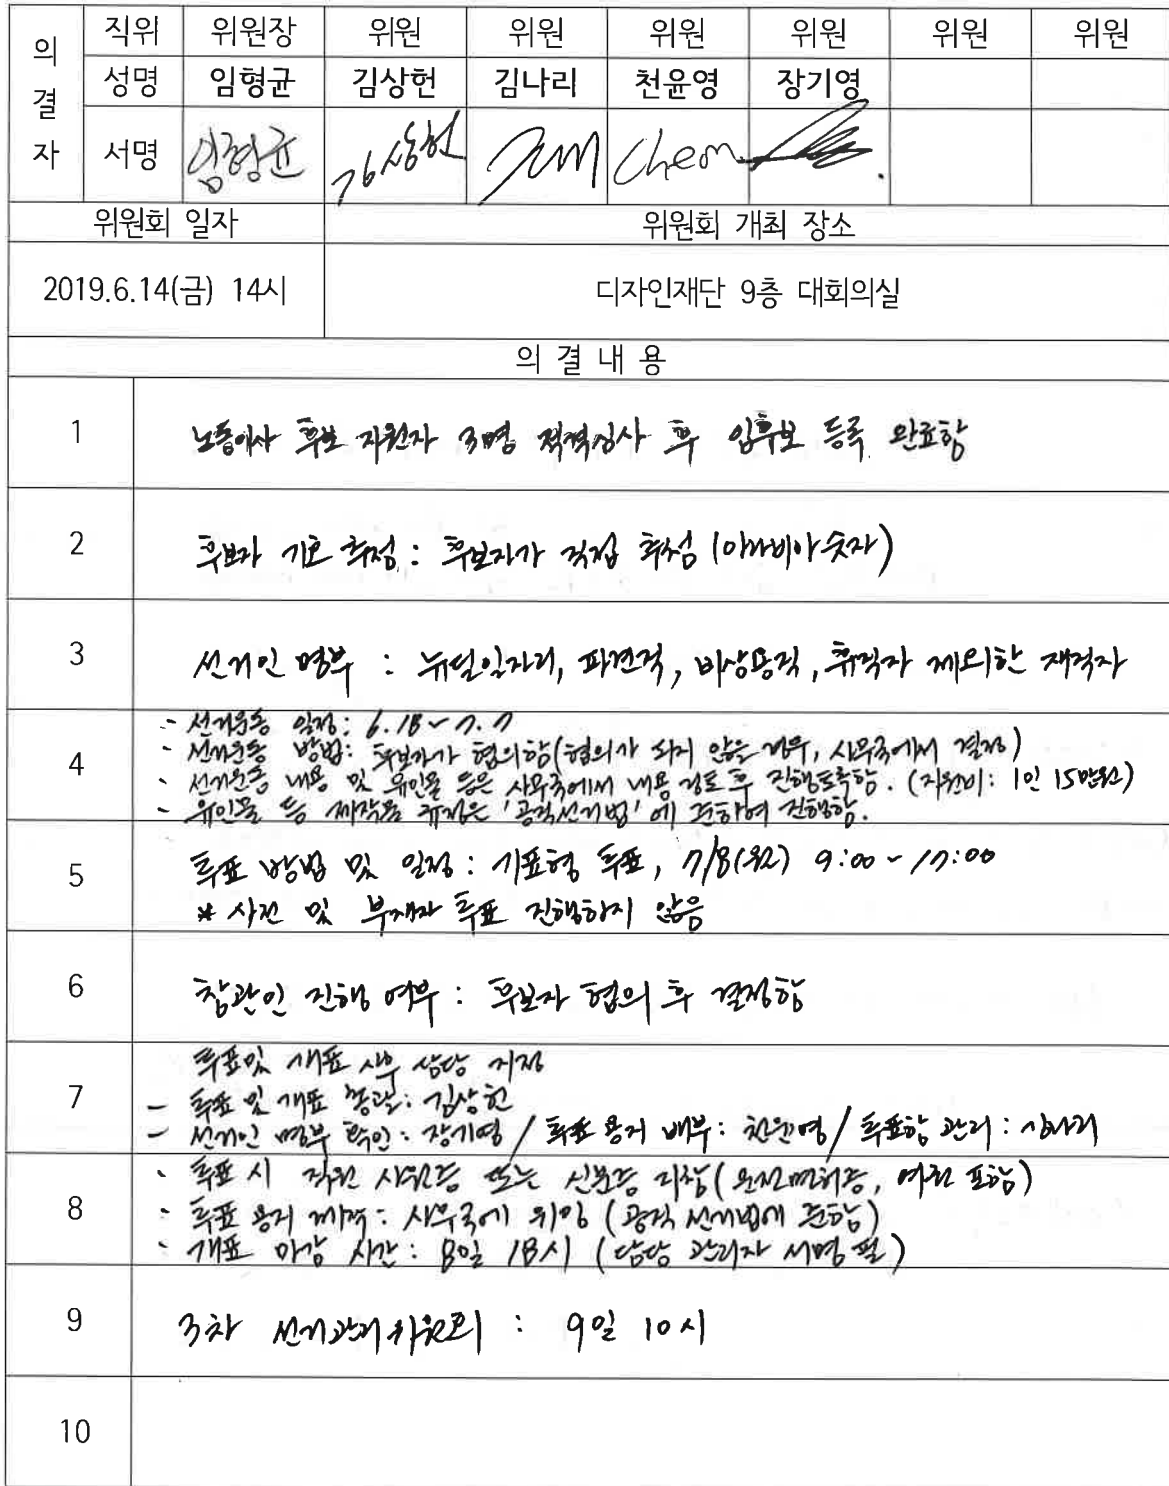 의결자
직위 위원장 위원 위원 위원 위원 위원 위원
성명 임형균 김상헌 김나리 천윤영 장기영
서명 임형균 김상헌 Cheon
위원회 일자 위원회 개최 장소
2019.6.14(금) 14시 디자인재단 9층 대회의실
의 결 내 용
1 노동이사 후보 지원자 3명 적격심사 후 입후보 등록 완료함
2 후보자 기호 추첨 : 후보자가 직접 추첨 (아라비아 숫자)
3 선거인 명부 : 뉴딜일자리, 파견직, 비상용직, 휴직자 제외한 재직자
4
- 선거운동 일정: 6.18 ~ 7.7
- 선거운동 방법: 후보자가 협의함(협의가 되지 않을 경우, 사무국에서 결정)
- 선거운동 내용 및 유인물 등은 사무국에서 내용 검토 후 진행토록함. (지원비: 1인 15만원)
- 유인물 등 제작물 규정은 '공직선거법'에 준하여 진행함.
5 투표 방법 및 일정 : 기표형 투표, 7/8(월) 9:00 ~ 17:00
* 사전 및 부재자 투표 진행하지 않음
6 참관인 진행 여부 : 후보자 협의 후 결정함
투표및 개표 사무 담당 지정
7
- 투표 및 개표 총괄: 김상헌
- 선거인 명부 확인: 장기영 / 투표 용지 배부: 천윤영 / 투표함 관리: 김나리
8
- 투표 시 직원 사원증 또는 신분증 지참( 운전면허증, 여권 포함)
- 투표 용지 제작: 사무국에 위임 (공직 선거법에 준함)
- 개표 마감 시간: 8일 18시 (담당 관리자 서명 필)
9 3차 선거관리위원회 : 9일 10시
10